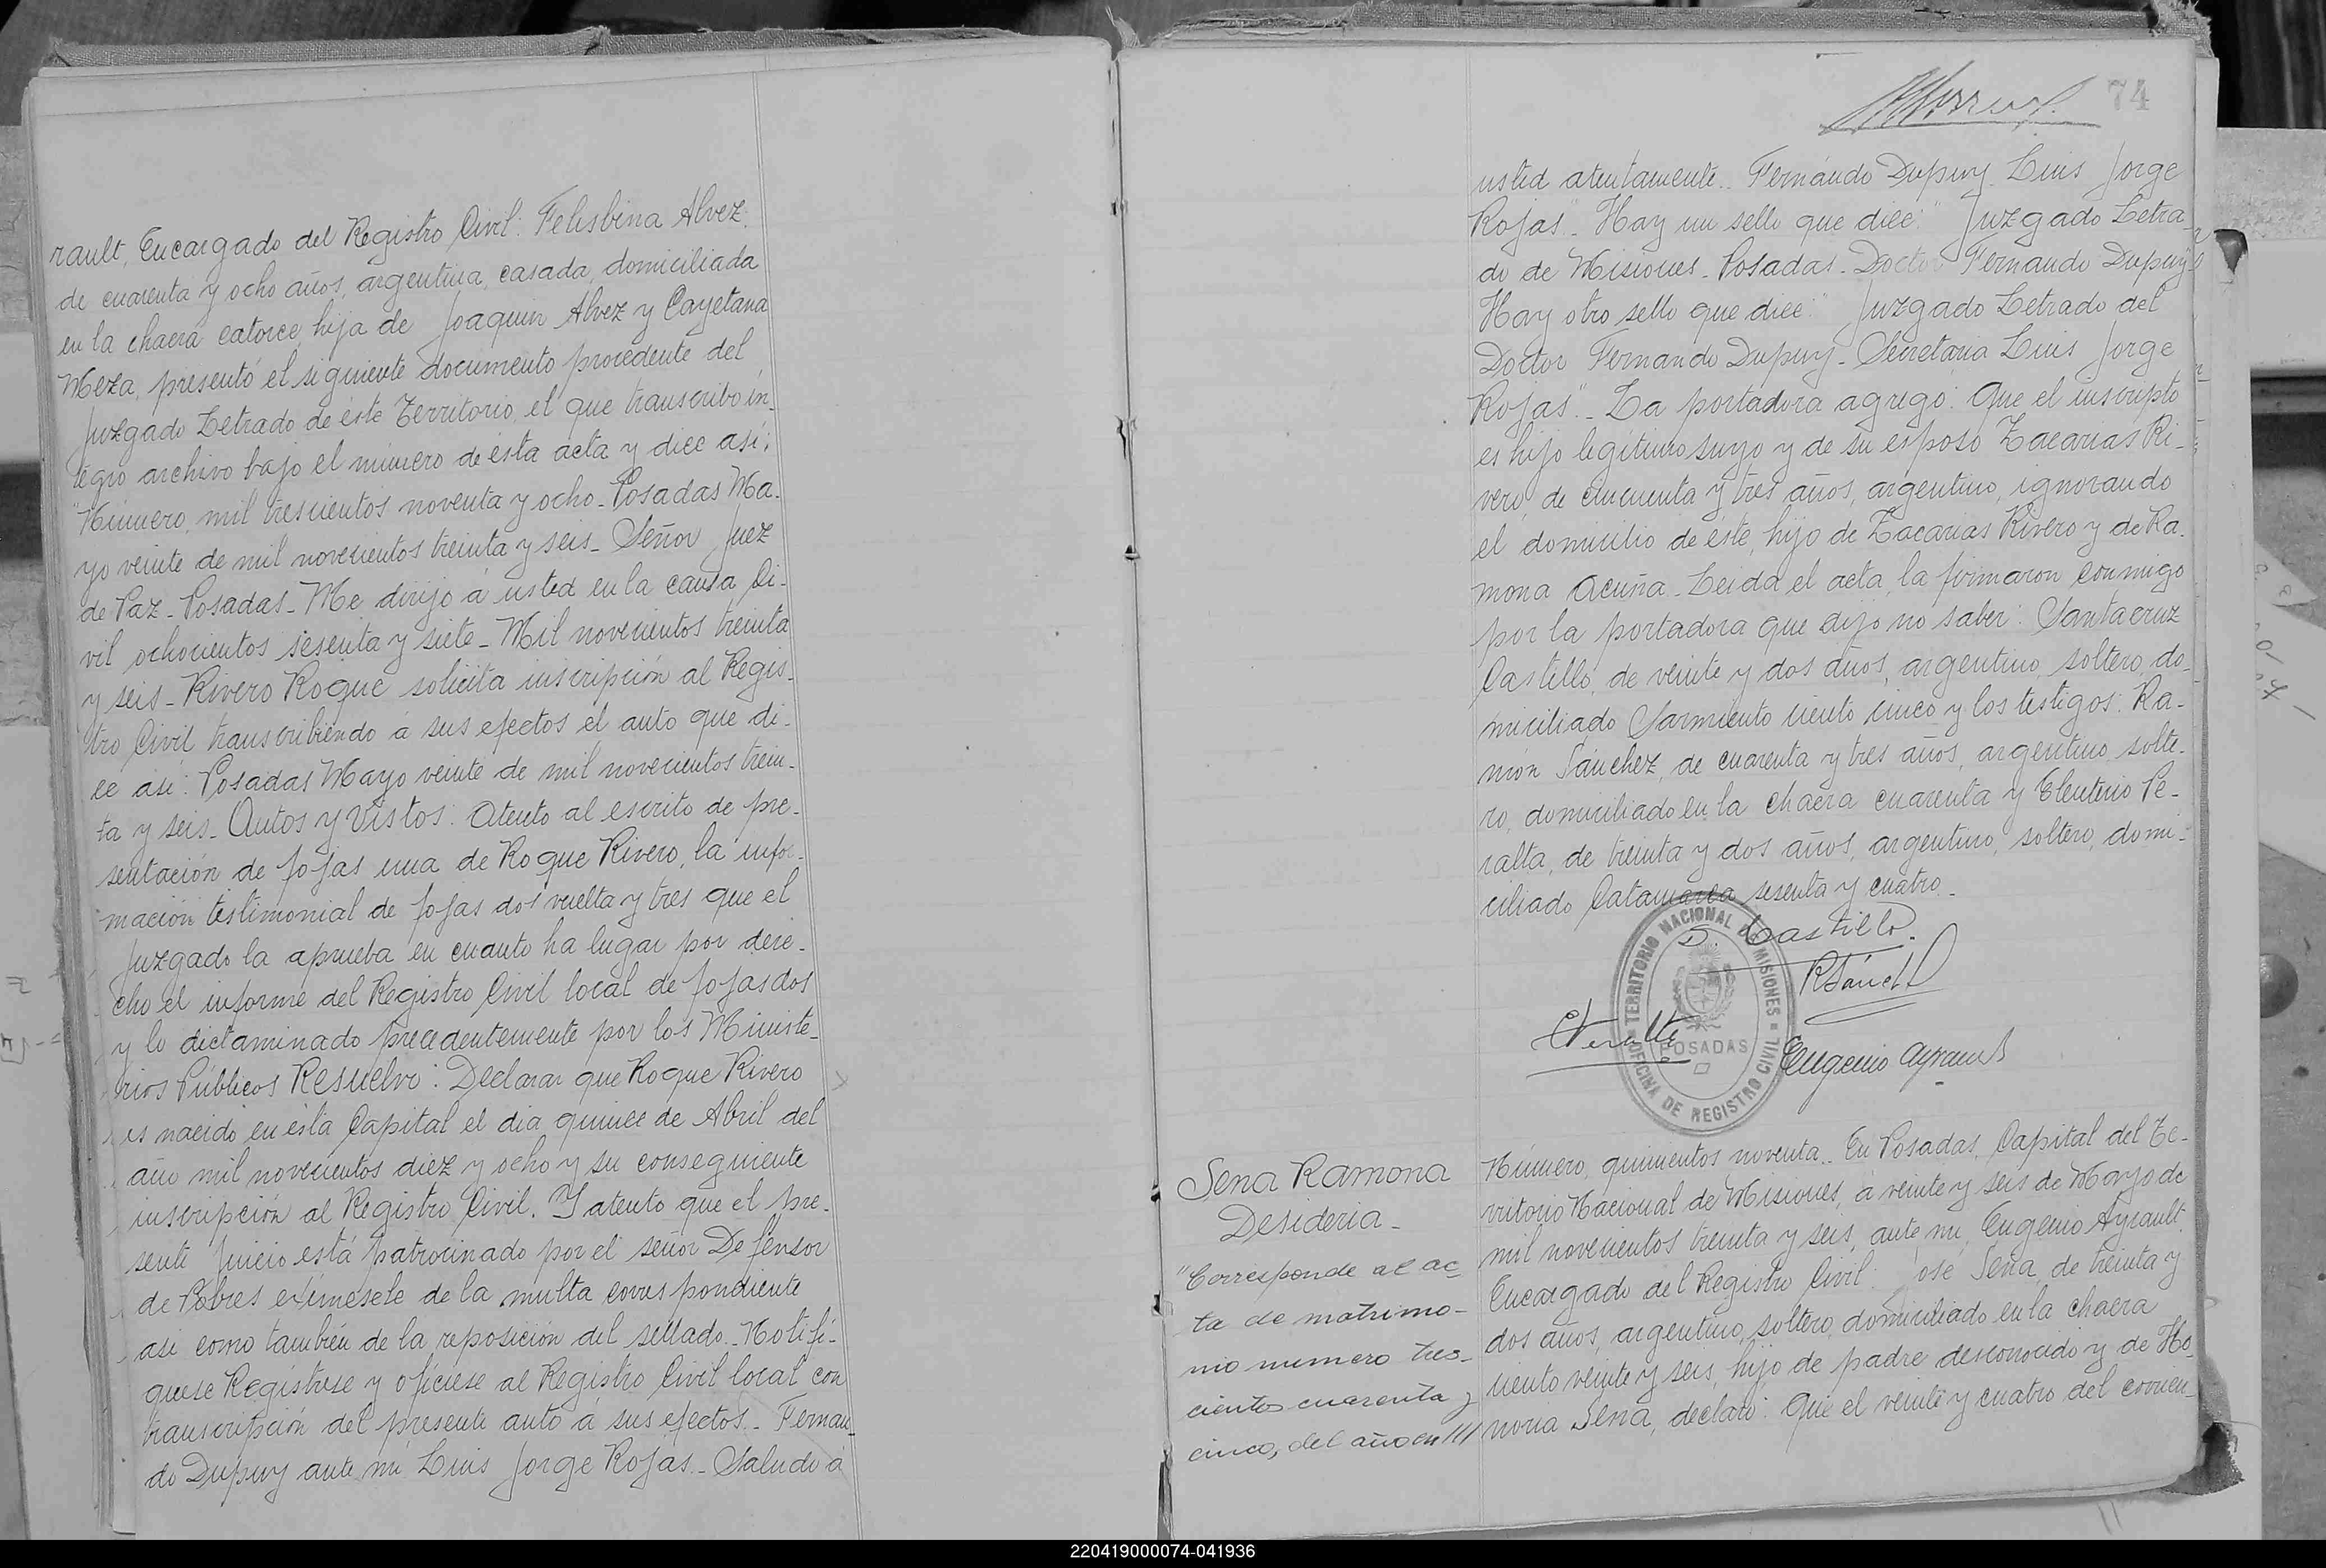 rault, Encargado del Registro Civil: Felisbina Alvez,
de cuarenta y ocho años, argentina, casada, domiciliada
en la chacra catorce, hija de Joaquin Alvez y Cayetana
Meza, presentó el siguiente documento procedente del
Juzgado Letrado de éste Territorio, el que transcribo ín-
tegro archivo bajo el número de ésta acta y dice así:
"Número, mil trescientos noventa y ocho - Posadas Ma-
yo veinte de mil novecientos treinta y seis - Señor Juez
de Paz - Posadas - Me dirijo á usted en la causa Ci-
vil ochocientos sesenta y siete - Mil novecientos treinta
y seis - Rivero Roque solicita inscripción al Regis-
tro Civil transcribiendo á sus efectos el auto que di-
ce asi: Posadas Mayo veinte de mil novecientos trein-
ta y seis - Autos y Vistos: Atento al escrito de pre-
sentación de fojas una de Roque Rivero, la infor-
mación testimonial de fojas dos vuelta y tres que el
Juzgado la aprueba en cuanto ha lugar por dere-
cho el informe del Registro Civil local de fojas dos
y lo dictaminado precedentemente por los Ministe-
rios Públicos Resuelvo: Declarar que Roque Rivero
es nacido en ésta Capital el dia quince de Abril del
año mil novecientos diez y ocho y su consiguiente
inscripción al Registro Civil. Y atento que el pre-
sente juicio está patrocinado por el señor Defensor
de Pobres exímesele de la multa correspondiente
asi como también de la reposición del sellado - Notifi-
quese Regístrese y ofíciese al Registro Civil local con
transcripción del presente auto á sus efectos - Fernan-
do Dupuy ante mi Luis Jorge Rojas - Saludo á
74
usted atentamente. Fernando Dupuy Luis Jorge
Rojas" - Hay un sello que dice: "Juzgado Letra-
do de Misiones - Posadas - Doctor Fernando Dupuy"
Hay otro sello que dice: "Juzgado Letrado del
Doctor Fernando Dupuy - Secretaria Luis Jorge
Rojas" - La portadora agregó: Que el inscripto
es hijo legítimo suyo y de su esposo Zacarias Ri-
vero, de cincuenta y tres años, argentino, ignorando
el domicilio de éste, hijo de Zacarias Rivero y de Ra-
mona Acuña - Leida el acta, la firmaron conmigo
por la portadora que dijo no saber: Santacruz
Castillo, de veinte y dos años, argentino, soltero, do-
miciliado Sarmiento ciento cinco y los testigos: Ra-
món Sánchez, de cuarenta y tres años, argentino, solte-
ro, domiciliado en la chacra cuarenta y Eleuterio Pe-
ralta, de treinta y dos años, argentino, soltero, domi-
ciliado Catamarca sesenta y cuatro -
S. Castillo.
RSánch
Eugenio Ayrault
TERRITORIO NACIONAL DE MISIONES
POSADAS
OFICINA DE REGISTRO CIVIL
Sena Ramona
Desideria -
"Corresponde al ac-
ta de matrimo-
nio numero tres-
cientos cuarenta y
cinco, del año en ///
Número, quinientos noventa. En Posadas, Capital del Te-
rritorio Nacional de Misiones, á veinte y seis de Mayo de
mil novecientos treinta y seis, ante mi, Eugenio Ayrault,
Encargado del Registro Civil: José Sena, de treinta y
dos años, argentino, soltero, domiciliado en la chacra
ciento veinte y seis, hijo de padre desconocido y de Ho-
noria Sena, declaró: Que el veinte y cuatro del corrien-
220419000074-041936